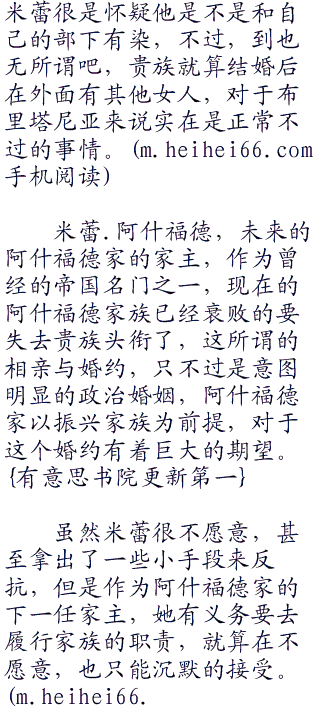 米蕾很是怀疑他是不是和自
己的部下有染，不过，到也
无所谓吧，贵族就算结婚后
在外面有其他女人，对于布
里塔尼亚来说实在是正常不
过的事情。(m.heihei66.com
手机阅读)
米蕾.阿什福德，未来的
阿什福德家的家主，作为曾
经的帝国名门之一，现在的
阿什福德家族已经衰败的要
失去贵族头衔了，这所谓的
相亲与婚约，只不过是意图
明显的政治婚姻，阿什福德
家以振兴家族为前提，对于
这个婚约有着巨大的期望。
{有意思书院更新第一}
虽然米蕾很不愿意，甚
至拿出了一些小手段来反
抗，但是作为阿什福德家的
下一任家主，她有义务要去
履行家族的职责，就算在不
愿意，也只能沉默的接受。
(m.heihei66.